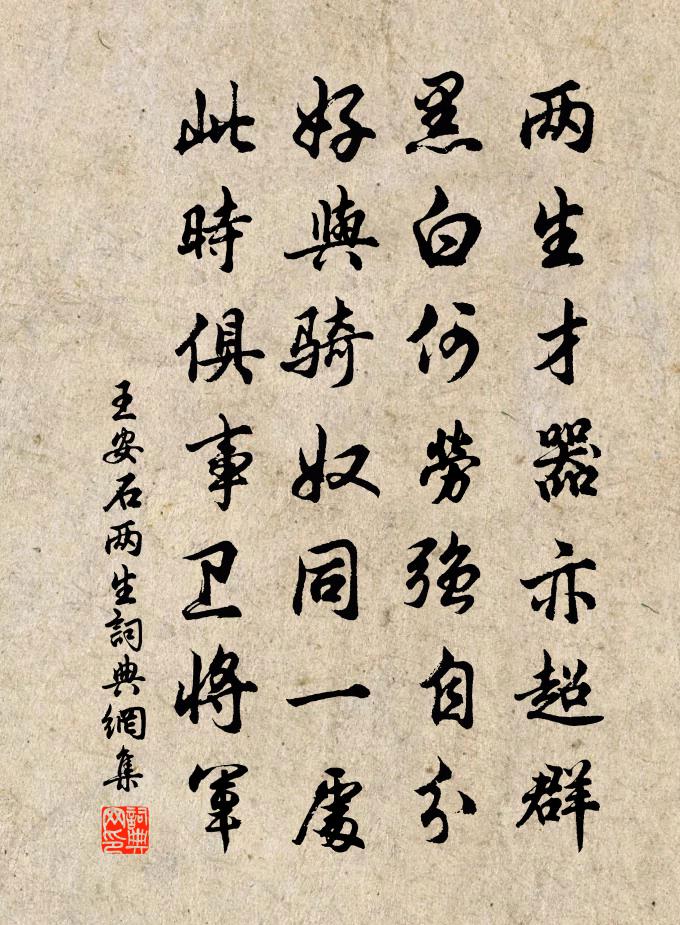 两生才器亦超群
黑白何劳強自分
好與骑奴同一處
此時俱事卫將軍
王安石两生詞典網集
詞典网印